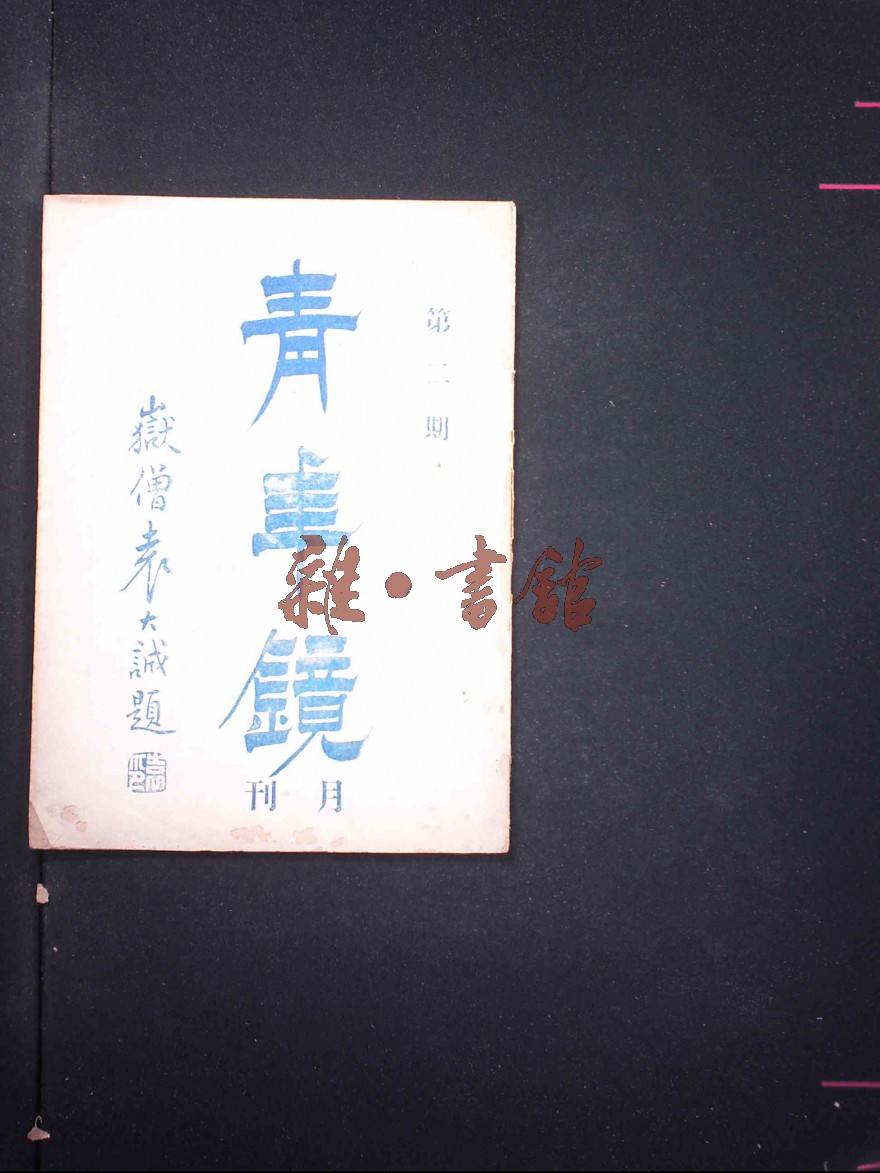 第二期
青年鏡
月刊
嶽僧袁大誠題
雜•書館